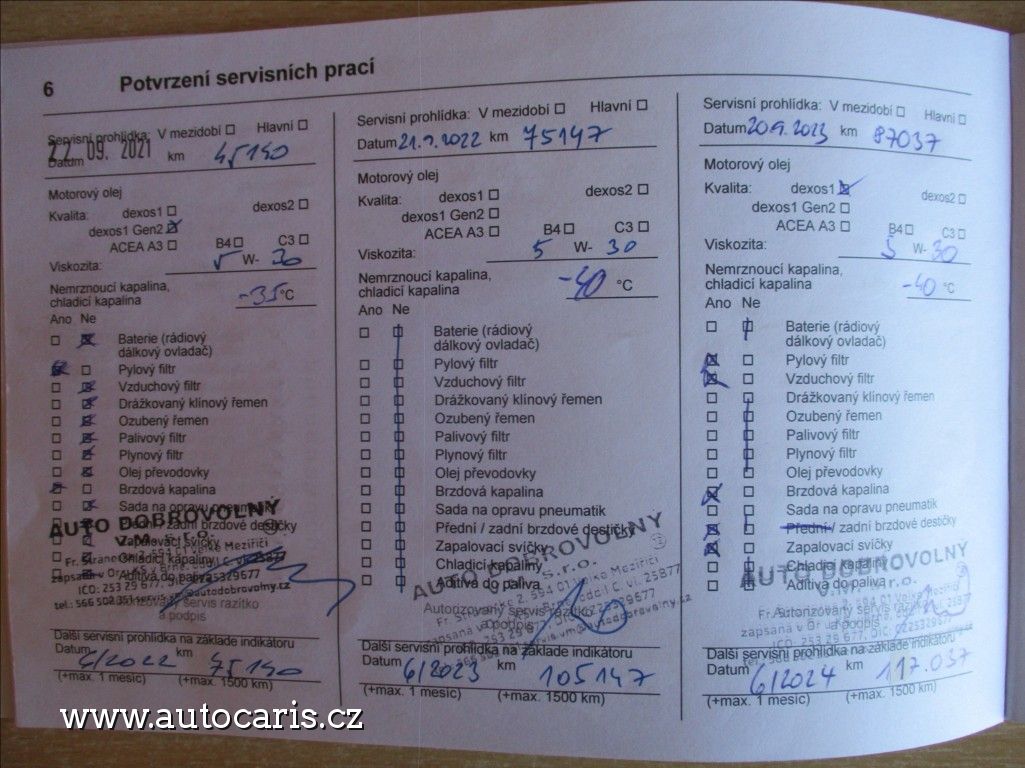 6 Potvrzení servisních prací
Servisní prohlídka: V mezidobí Hlavní
22 09. 2021
Datum km 45190
Motorový olej
Kvalita: dexos1 dexos2
dexos1 Gen2
ACEA A3 B4 C3
Viskozita: 5 W- 30
Nemrznoucí kapalina,
chladicí kapalina -35 °C
Ano Ne
Baterie (rádiový
dálkový ovladač)
Pylový filtr
Vzduchový filtr
Drážkovaný klínový řemen
Ozubený řemen
Palivový filtr
Plynový filtr
Olej převodovky
Brzdová kapalina
Sada na opravu pneumatik
Přední / zadní brzdové destičky
Zapalovací svíčky
Chladicí kapaliny
Aditiva do paliva
AUTO DOBROVOLNÝ
V.M. s.r.o.
594 01 Velké Meziříčí
Autorizovaný servis razítko
a podpis
Další servisní prohlídka na základě indikátoru
Datum 6/2022 km 75190
(+max. 1 měsíc) (+max. 1500 km)
Servisní prohlídka: V mezidobí Hlavní
Datum 21.9.2022 km 75147
Motorový olej
Kvalita: dexos1 dexos2
dexos1 Gen2
ACEA A3 B4 C3
Viskozita: 5 W- 30
Nemrznoucí kapalina,
chladicí kapalina -40 °C
Ano Ne
Baterie (rádiový
dálkový ovladač)
Pylový filtr
Vzduchový filtr
Drážkovaný klínový řemen
Ozubený řemen
Palivový filtr
Plynový filtr
Olej převodovky
Brzdová kapalina
Sada na opravu pneumatik
Přední / zadní brzdové destičky
Zapalovací svíčky
Chladicí kapaliny
Aditiva do paliva
AUTO DOBROVOLNÝ
s.r.o.
594 01 Velké Meziříčí
Autorizovaný servis razítko
a podpis
Další servisní prohlídka na základě indikátoru
Datum 6/2023 km 105147
(+max. 1 měsíc) (+max. 1500 km)
Servisní prohlídka: V mezidobí Hlavní
Datum 20.9.2023 km 87037
Motorový olej
Kvalita: dexos1 dexos2
dexos1 Gen2
ACEA A3 B4 C3
Viskozita: 5 W- 30
Nemrznoucí kapalina,
chladicí kapalina -40 °C
Ano Ne
Baterie (rádiový
dálkový ovladač)
Pylový filtr
Vzduchový filtr
Drážkovaný klínový řemen
Ozubený řemen
Palivový filtr
Plynový filtr
Olej převodovky
Brzdová kapalina
Sada na opravu pneumatik
Přední / zadní brzdové destičky
Zapalovací svíčky
Chladicí kapaliny
Aditiva do paliva
AUTO DOBROVOLNÝ
Autorizovaný servis razítko
a podpis
Další servisní prohlídka na základě indikátoru
Datum 6/2024 km 117.037
(+max. 1 měsíc) (+max. 1500 km)
www.autocaris.cz